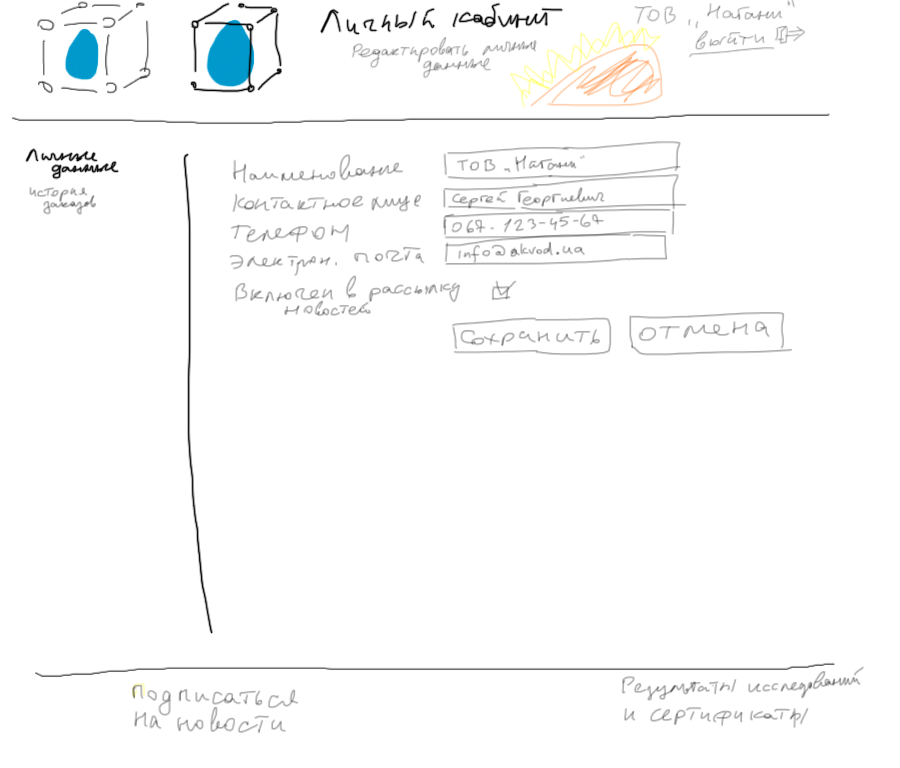 Личный кабинет
Редактировать личные
данные
ТОВ „Натани"
выйти
Личные
данные
история
заказов
Наименование
ТОВ „Натани"
Контактное лице
Сергей Георгиевич
Телефон
067-123-45-67
Электрон. почта
info@akvod.ua
Включен в рассылку
новостей
Сохранить
отмена
Подписаться
на новости
Результаты исследований
и сертификаты